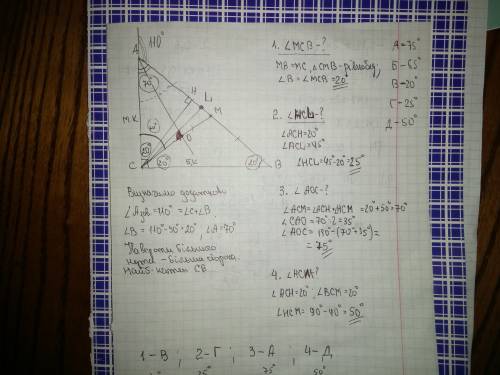 110°
A
70°
H
L
M
O
м.к.
20°
C
20°
б.к
20°
B
Визначаємо додатково
∠A зов.=110°=∠C+∠B
∠B=110°-90°=20°, ∠A=70°
Навпроти більшого
кута - більша сторона.
Найб. катет CB.
1. ∠MCB-?
MB=MC, △CMB-рівнобед.,
∠B=∠MCB=20°
2. ∠HCL-?
∠ACH=20°
∠ACL=45°
∠HCL=45°-20°=25°
3. ∠AOC-?
∠ACM=∠ACH+∠HCM=20°+50°=70°
∠CAO=70°:2=35°
∠AOC=180°-(70°+35°)=
=75°
4.
∠ACH=20°, ∠BCM=20°
∠HCM=90°-40°=50°
A=75°
Б-65°
В-20°
Г-25°
Д-50°
1-В; 2-Г; 3-А; 4-Д
25° 75° 50°